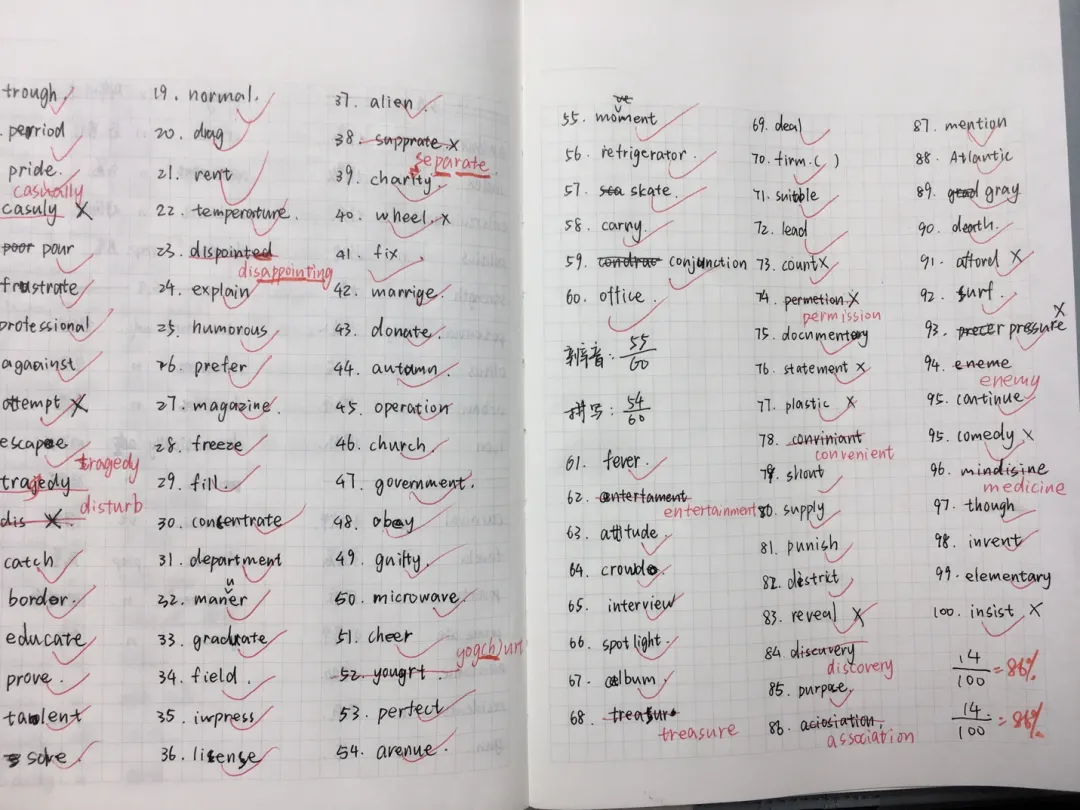 trough
perriod
pride.
casually
casuly X
poor pour
frustrate
professional
against
attempt X
escape
tragedy
tragedy
disturb
dis X
catch
border.
educate
prove.
talent
solve
19. normal.
20. drag
21. rent
22. temperature.
23. dispointed
disappointing
24. explain
25. humorous
26. prefer
27. magazine.
28. freeze
29. fill.
30. concentrate
31. department
u
32. maner
33. graduate
34. field.
35. impress
36. license
37. alien
38. supprate X
separate.
39. charity
40. wheel. X
41. fix
42. marrige.
43. donate.
44. autumn.
45. operation
46. church.
47. government.
48. obey
49. guilty.
50. microwave.
51. cheer
yog(h)urt
52. yougrt
53. perfect
54. avenue.
ve
55. moment
56. refrigerator.
57. sca skate.
58. carry.
59. conjunction
60. office.
55/60
拼写: 54/60
61. fever.
62. entertament
entertainment
63. attitude.
64. crowd
65. interview
66. spotlight.
67. album
68. treasur
treasure
69. deal
70. firm. ( )
71. suitble
72. lead
73. count X
74. permetion X
permission
75. documentary
76. statement X
77. plastic X
78. conviniant
convenient
79. shout
80. supply
81. punish
82. district
83. reveal X
84. discuvery
discovery
85. purpose
86. aciosiation.
association
87. mention
88. Atlantic
89. gray
90. death.
91. afford X
92. surf.
93. precer pressure X
94. eneme
enemy
95. continue
95. comedy X
96. mindisine
medicine
97. though
98. invent
99. elementary
100. insist. X
14/100 = 86%
14/100 = 86%